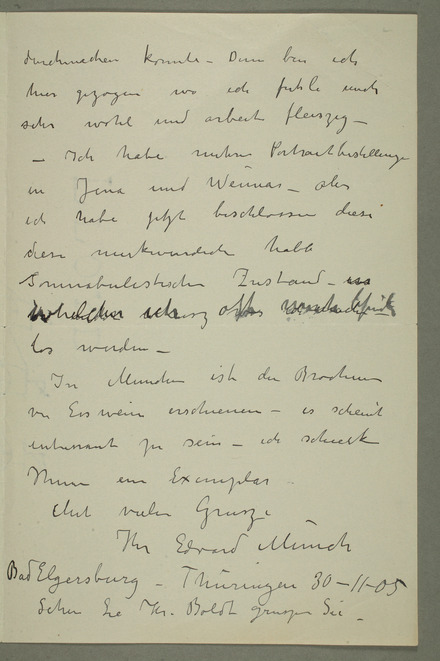 durchmachen konnte – Dann bin ich
hier gezogen wo ich fühle mich
sehr wohl und arbeite fleiszig –
– Ich habe mehre Portraitbestellunge
in Jena und Weimar – aber
ich habe jetzt beschlossen diese
diese merkwurdiche halb
Somnabulistischen Zustand – in
welcher ich
los werden –
In Munchen ist die Brochure
von Esswein erschienen – es scheint
interessant zu sein – ich schicke
Ihnen ein Exemplar
Mit vielen Grusze
Ihr Edvard Munch
Bad Elgersburg – Thüringen 30–11–05
Sehen Sie Hr. Boldt gruszen Sie –